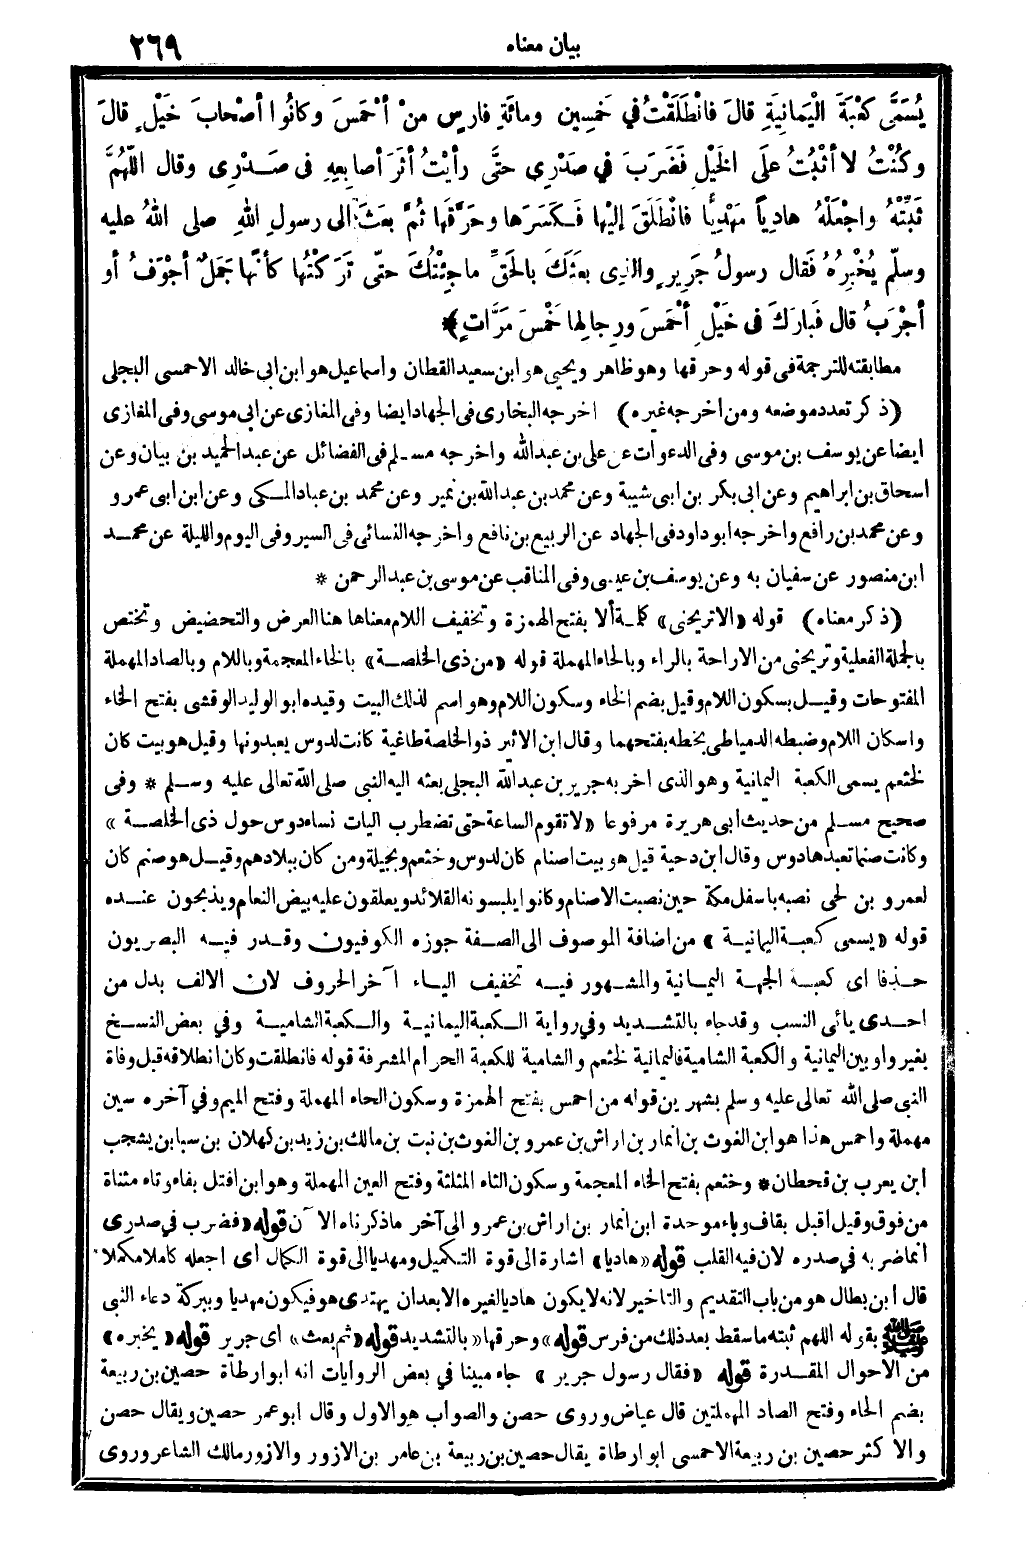 بيان معناه ٢٦٩
يُسَمَّى كَعْبَةَ الْيَمَانِيَةِ قالَ فانْطَلَقْتُ في خَمْسِين ومائَةِ فارِسٍ منْ أَحْمَسَ وكانُوا أصْحابَ خَيْلٍ قالَ
وكُنْتُ لا أثْبُتُ علَى الخَيْلِ فَضَرَبَ في صدْرِي حتَّى رأيْتُ أثَرَ أصابِعِهِ فى صَدْرِى وقال اللّهُمَّ
ثَبِّتْهُ واجْعَلْهُ هادِياً مَهْدِيًّا فانْطَلَقَ إليْها فَكَسَرَها وحَرَّقَها ثُمَّ بعَثَ إلى رسولِ اللهِ صلى اللهُ عليه
وسلّم يُخْبِرُهُ فَقال رسولُ جَرِيرٍ والذِى بعثَكَ بالحَقِّ ما جِئْتُكَ حتّى تَرَكْتُها كأنّها جَمَلٌ أجْوَفُ أو
أجْرَبُ قال فَبارَكَ فى خَيْلِ أحْمَسَ ورِجالِها خَمْسَ مَرَّاتٍ﴾
مطابقته للترجمة فى قوله وحرقها وهو ظاهر ويحيى هو ابن سعيد القطان واسماعيل هو ابن ابى خالد الاحمسى البجلى
(ذكر تعدد موضعه ومن اخرجه غيره) اخرجه البخارى فى الجهاد ايضا وفى المغازى عن ابى موسى وفى المغازى
ايضا عن يوسف بن موسى وفى الدعوات عن على بن عبدالله واخرجه مسلم فى الفضائل عن عبدالحميد بن بيان وعن
اسحاق بن ابراهيم وعن ابى بكر بن ابى شيبة وعن محمد بن عبدالله بن نمير وعن محمد بن عباد المكى وعن ابن ابى عمرو
وعن محمد بن رافع واخرجه ابو داود فى الجهاد عن الربيع بن نافع واخرجه النسائى فى السير وفى اليوم والليلة عن محمد
ابن منصور عن سفيان به وعن يوسف بن عيسى وفى المناقب عن موسى بن عبدالرحمن *
(ذكر معناه) قوله «الاتريحنى» كلمة ألا بفتح الهمزة وتخفيف اللام معناها هنا العرض والتحضيض وتختص
بالجملة الفعلية وتريحنى من الاراحة بالراء وبالحاء المهملة قوله «من ذى الخلصة» بالخاء المعجمة وباللام وبالصاد المهملة
المفتوحات وقيل بسكون اللام وقيل بضم الخاء وسكون اللام وهو اسم لذلك البيت وقيده ابو الوليد الوقشى بفتح الخاء
واسكان اللام وضبطه الدمياطى بخطه بفتحهما وقال ابن الاثير ذو الخلصة طاغية كانت لدوس يعبدونها وقيل هو بيت كان
لخثعم يسمى الكعبة اليمانية وهو الذى اخربه جرير بن عبدالله البجلى بعثه اليه النبى صلى الله تعالى عليه وسلم * وفى
صحيح مسلم من حديث أبى هريرة مرفوعا «لا تقوم الساعة حتى تضطرب اليات نساء دوس حول ذى الخلصة»
وكانت صنما تعبدها دوس وقال ابن دحية قيل هو بيت اصنام كان لدوس وخثعم وبجيلة ومن كان ببلادهم وقيل هو صنم كان
لعمرو بن لحى نصبه باسفل مكة حين نصبت الاصنام وكانوا يلبسونه القلائد ويعلقون عليه بيض النعام ويذبحون عنده
قوله «يسمى كعبة اليمانية» من اضافة الموصوف الى الصفة جوزه الكوفيون وقدر فيه البصريون
حذفا اى كعبة الجهة اليمانية والمشهور فيه تخفيف الياء آخر الحروف لان الالف بدل من
احدى يائى النسب وقد جاء بالتشديد وفي رواية الكعبة اليمانية والكعبة الشامية وفي بعض النسخ
بغير واو بين اليمانية والكعبة الشامية فاليمانية لخثعم والشامية للكعبة الحرام المشرفة قوله فانطلقت وكان انطلاقه قبل وفاة
النبى صلى الله تعالى عليه وسلم بشهرين قوله من احمس بفتح الهمزة وسكون الحاء المهملة وفتح الميم وفي آخره سين
مهملة واحمس هذا هو ابن الغوث بن انمار بن اراش بن عمرو بن الغوث بن نبت بن مالك بن زيد بن كهلان بن سبا بن يشجب
ابن يعرب بن قحطان * وخثعم بفتح الخاء المعجمة وسكون الثاء المثلثة وفتح العين المهملة وهو ابن افتل بفاء وتاء مثناة
من فوق وقيل اقبل بقاف وباء موحدة ابن انمار بن اراش بن عمرو الى آخر ما ذكرناه الآن قوله «فضرب في صدرى»
أنما ضربه في صدره لان فيه القلب قوله «هاديا» اشارة الى قوة التكميل ومهديا الى قوة الكمال أى اجعله كاملا مكملا
قال أبن بطال هو من باب التقديم والتاخير لانه لا يكون هاديا لغيره الا بعد ان يهتدى هو فيكون مهديا وببركة دعاء النبى
ﷺ بقوله اللهم ثبته ما سقط بعد ذلك من فرس قوله «وحرقها» بالتشديد قوله «ثم بعث» اى جرير قوله «يخبره»
من الاحوال المقدرة قوله «فقال رسول جرير» جاء مبينا في بعض الروايات انه ابو ارطاة حصين بن ربيعة
بضم الحاء وفتح الصاد المهملتين قال عياض وروى حصن والصواب هو الاول وقال ابو عمر حصين ويقال حصن
والاكثر حصين بن ربيعة الاحمسى ابو ارطاة يقال حصين بن ربيعة بن عامر بن الازور والازور مالك الشاعر وروى